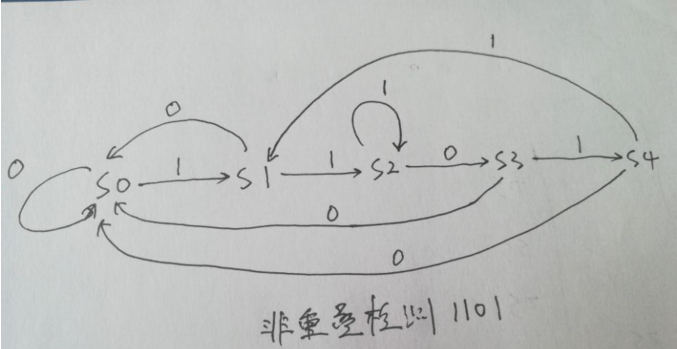 1
0
1
0
S0
1
S1
1
S2
0
S3
1
S4
0
0
非重叠检测 1101